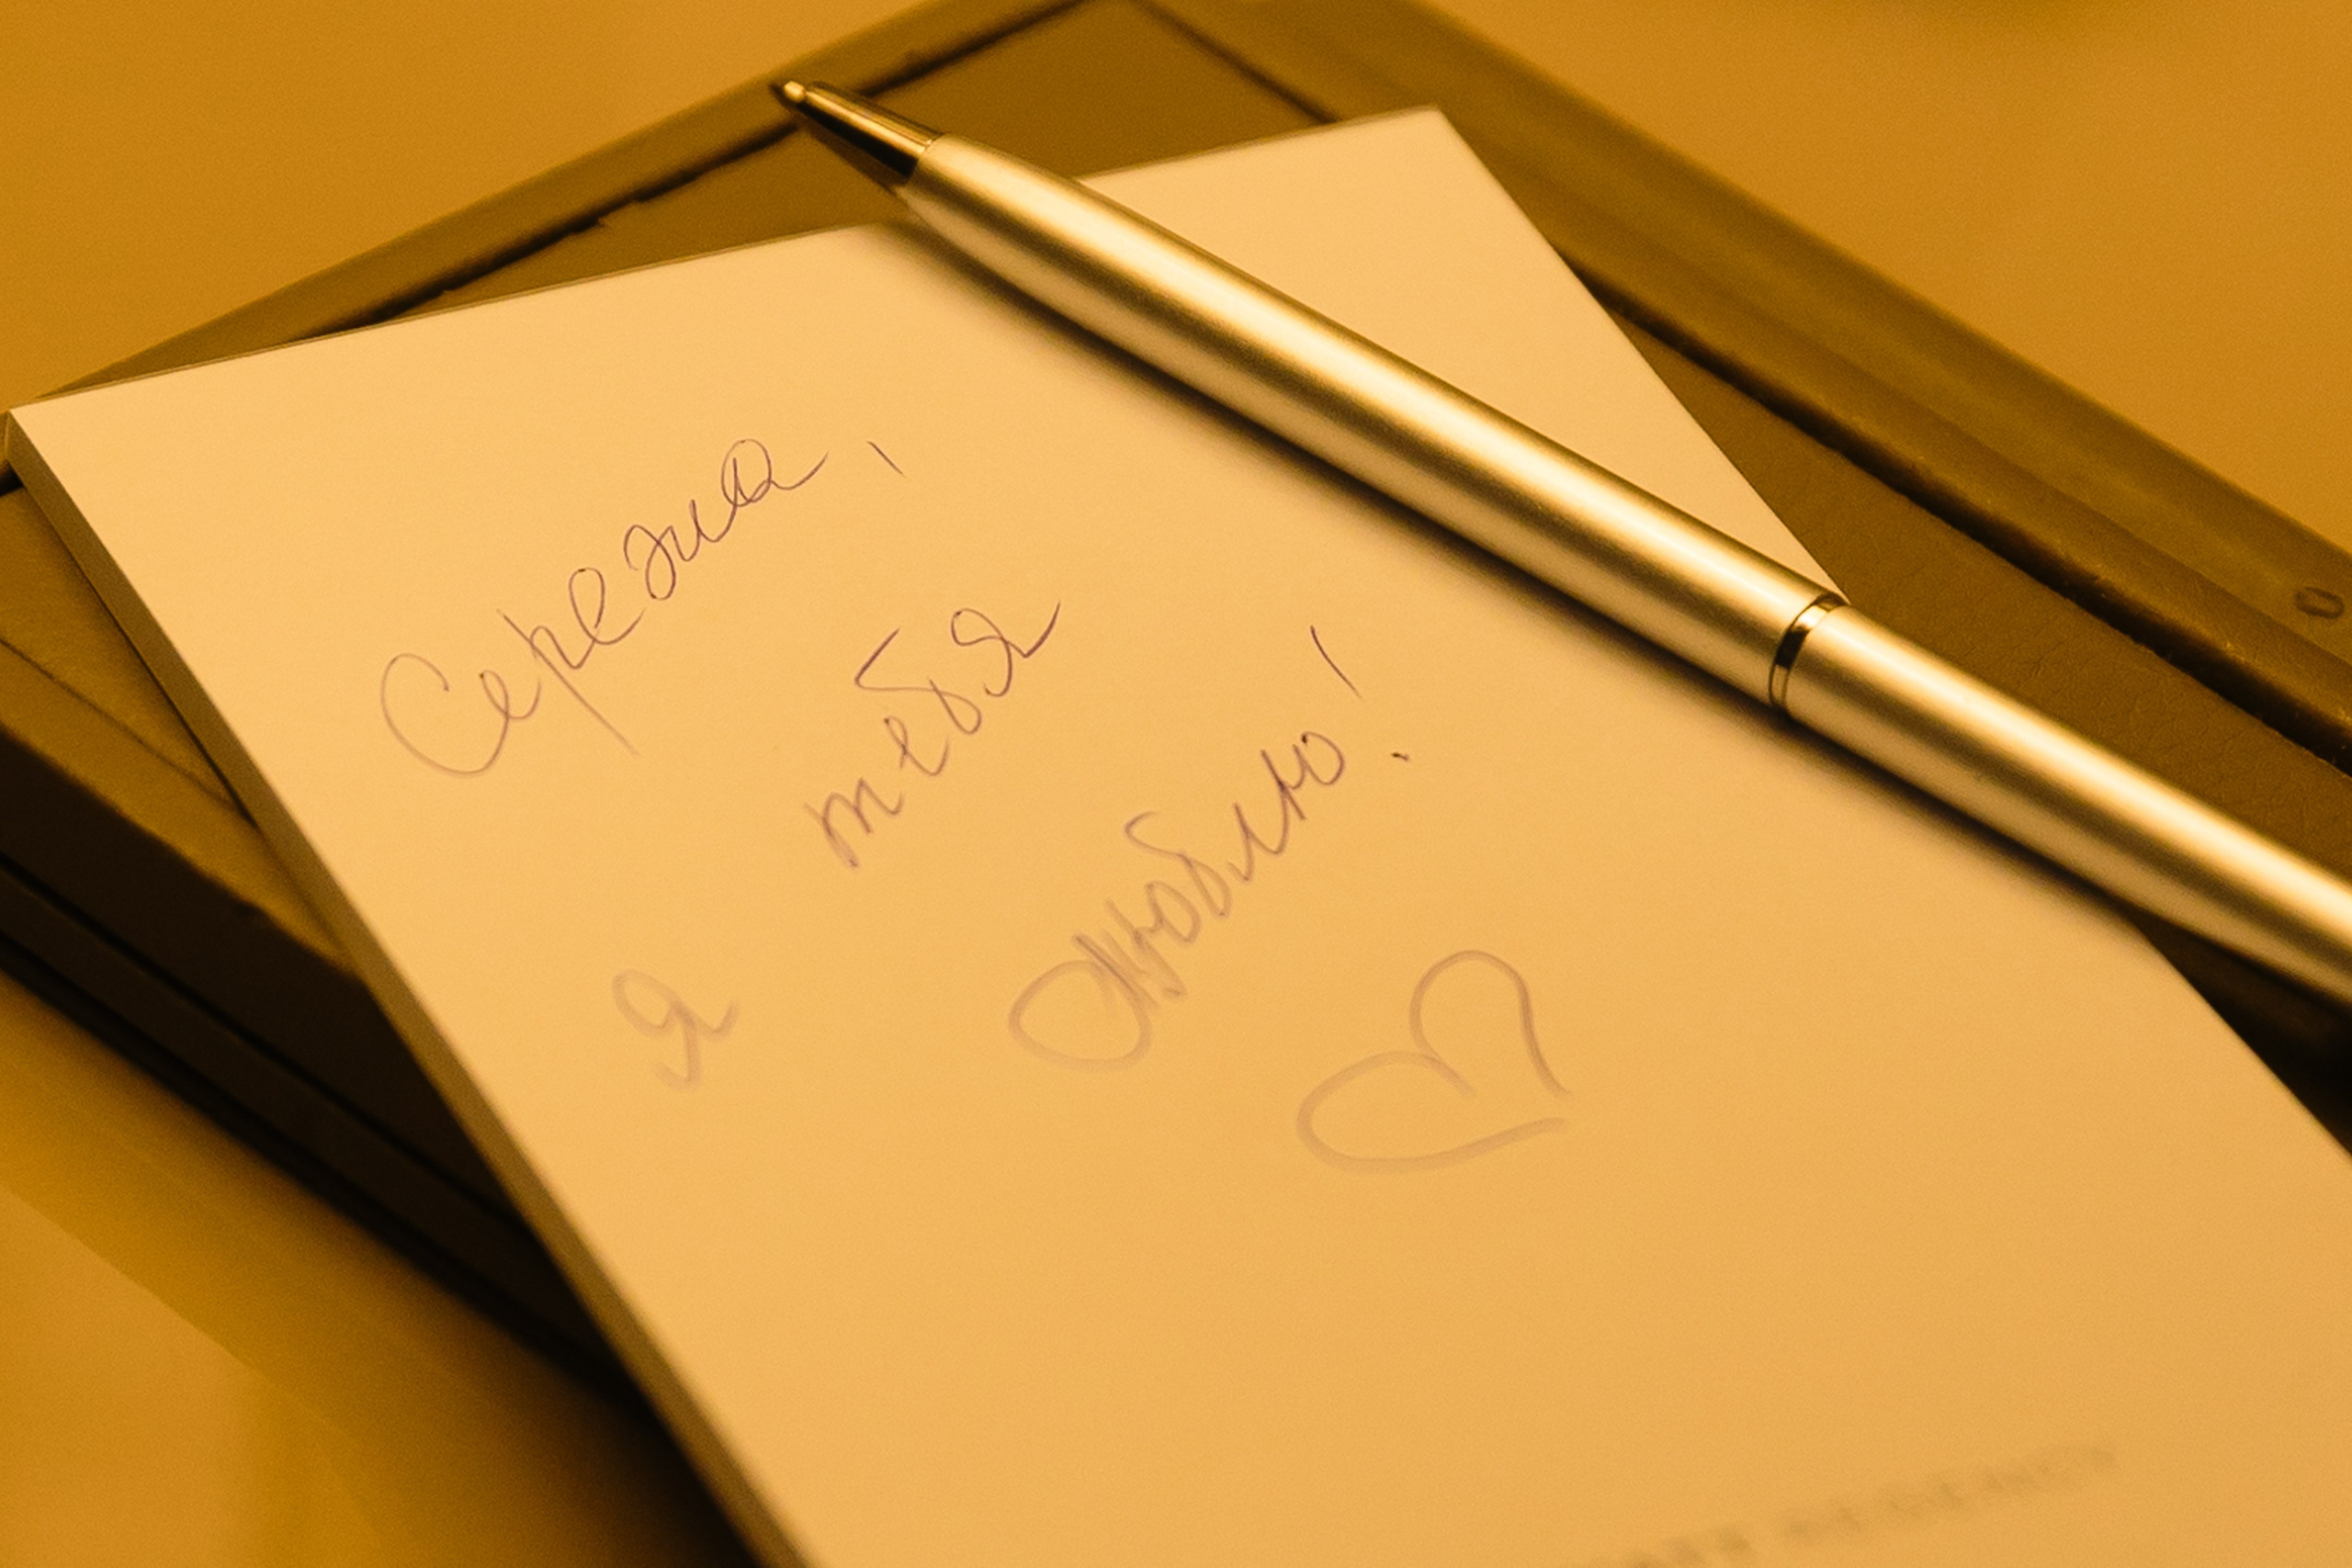 Сережа,
я тебя
люблю!